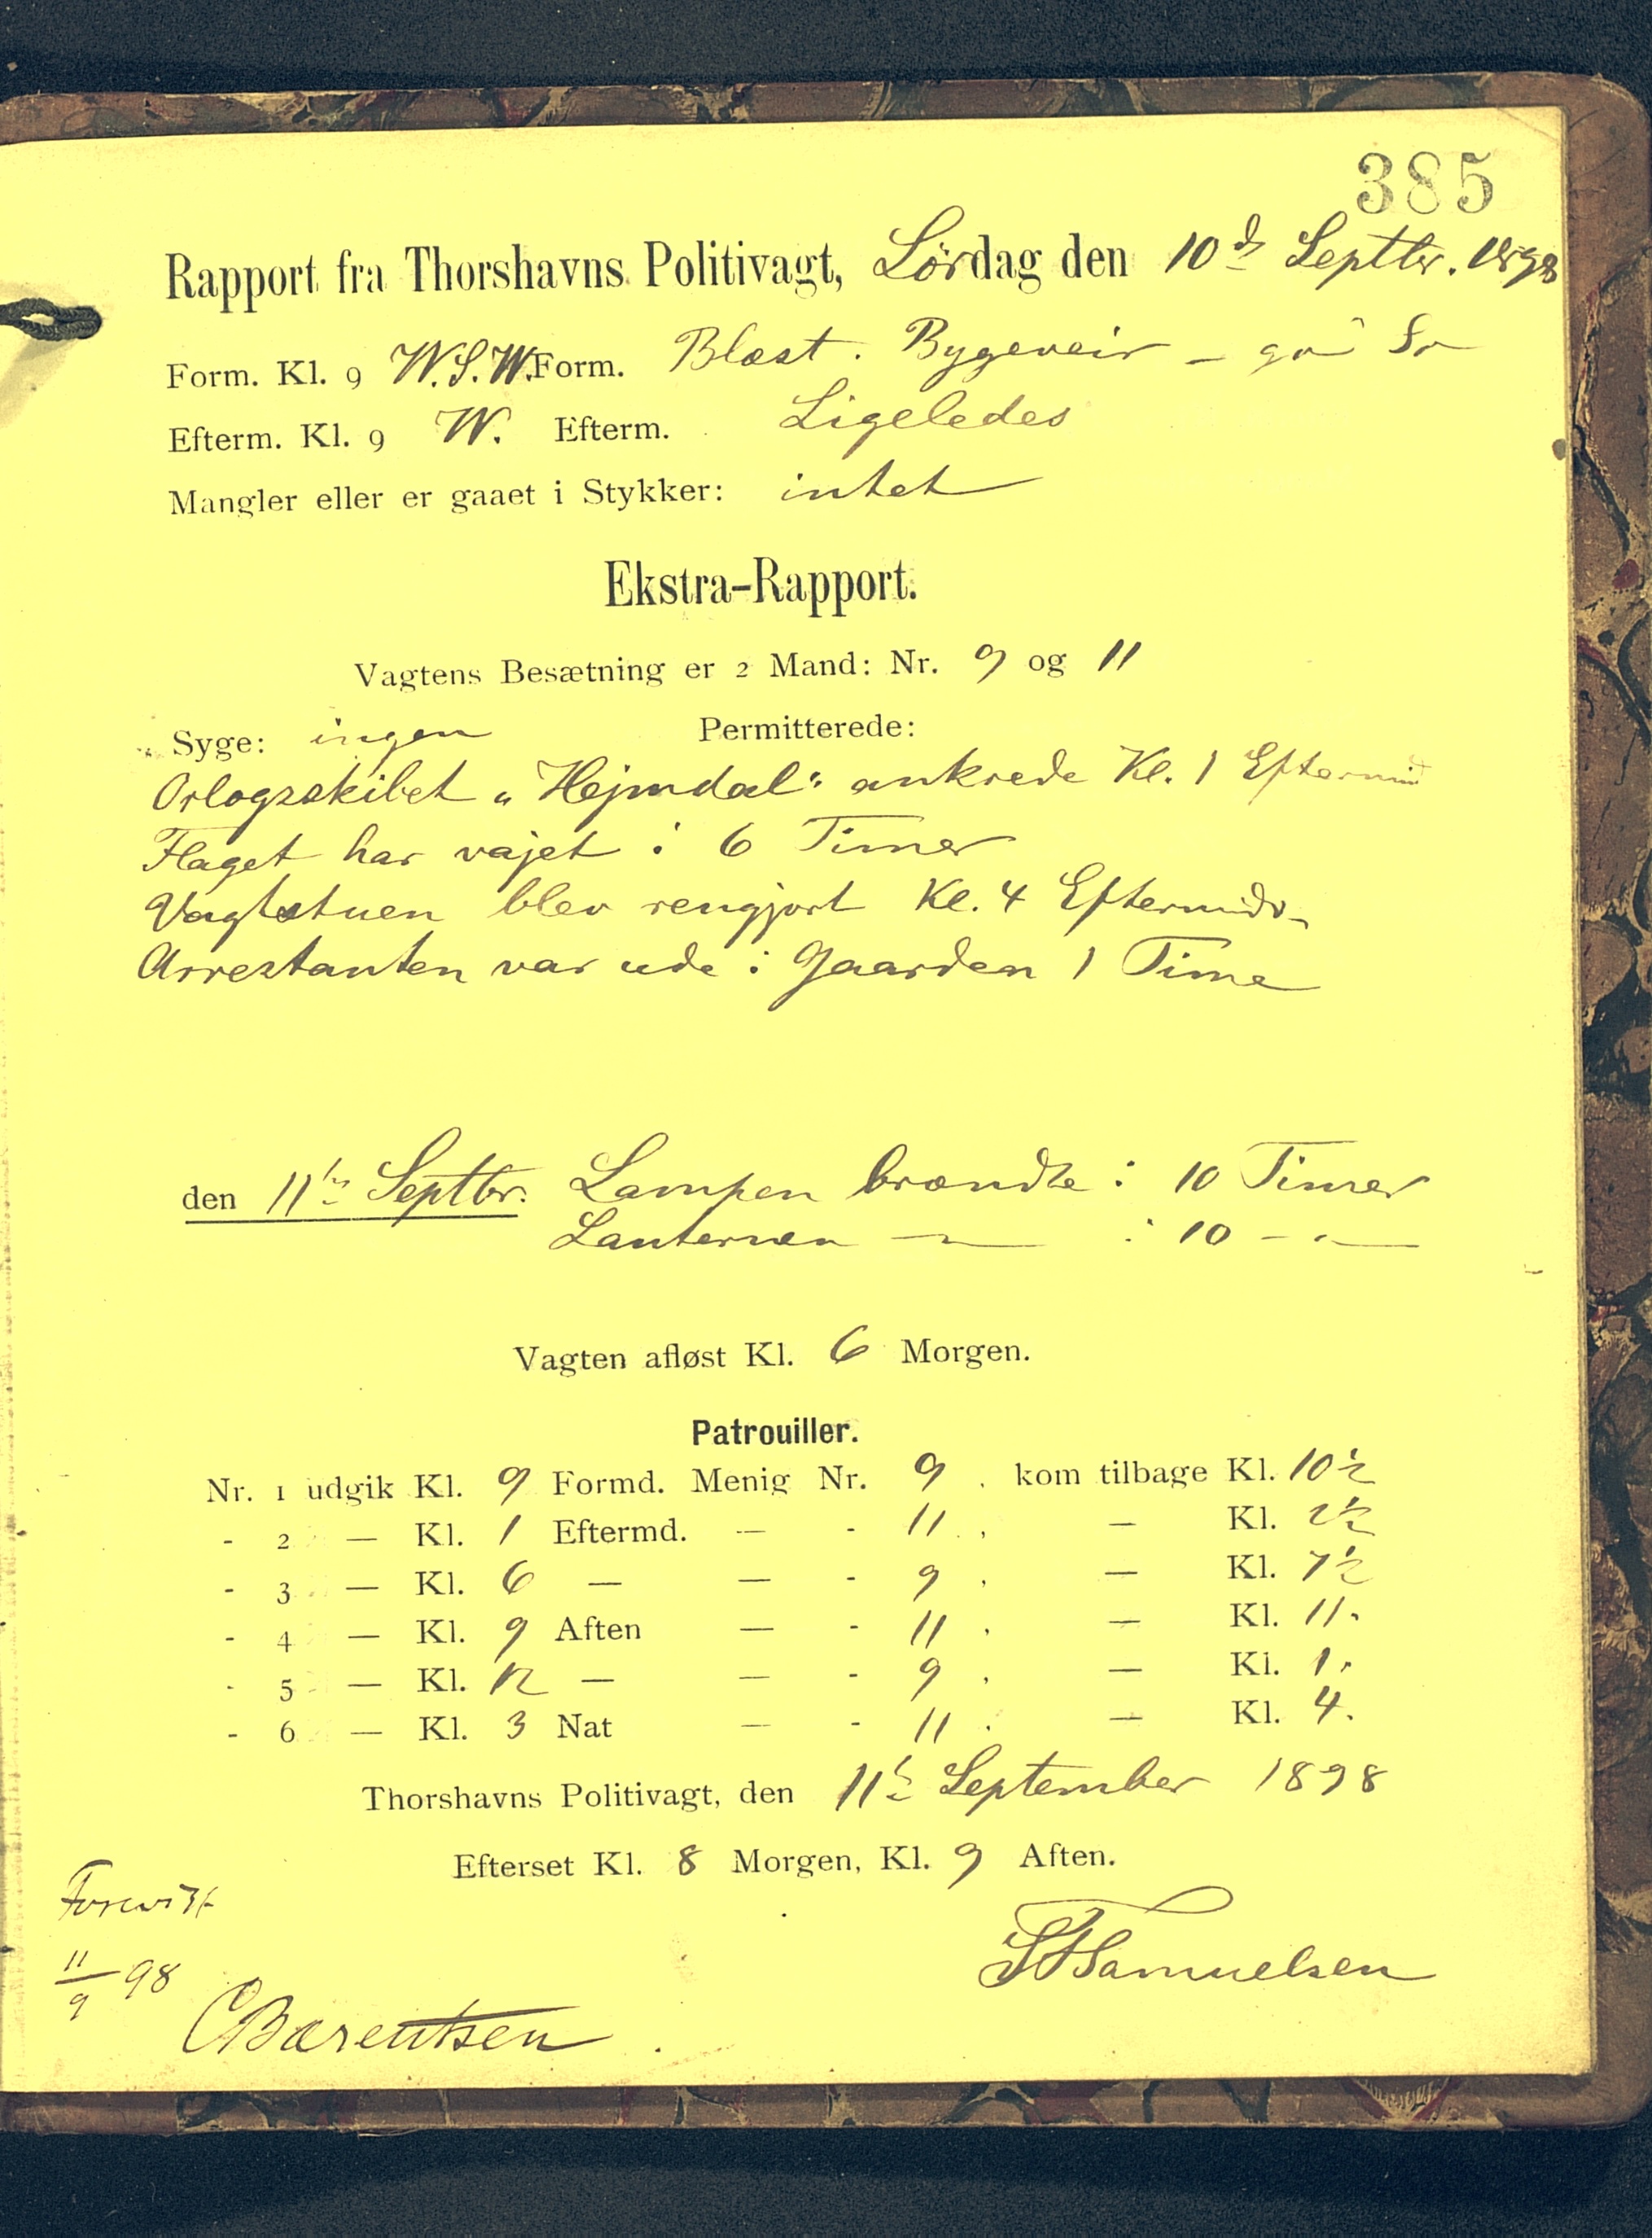 385
Rapport fra Thorshavns Politivagt, Lørdag den 10d Septbr. 1898
Form. Kl. 9 W.S.W. Form. Blæst. Bygeveir - gr Sø
Efterm. Kl. 9 W. Efterm. Ligeledes
Mangler eller er gaaet i Stykker: intet
Ekstra-Rapport.
Vagtens Besætning er 2 Mand: Nr. 9 og 11
Syge: ingen Permitterede:
Orlogsskibet „Hejmdal“ ankrede Kl. 1 Eftermid
Flaget har vajet i 6 Timer
Vagtstuen blev rengjort Kl. 4 Eftermid.
Arrestanten var ude i Gaarden 1 Time
den 11te Septbr. Lampen brændte i 10 Timer
Lanternen — i 10 - " -
Vagten afløst Kl. 6 Morgen.
Patrouiller.
Nr. 1 udgik Kl. 9 Formd. Menig Nr. 9. kom tilbage Kl. 10½
- 2 — Kl. 1 Eftermd. — - 11. — Kl. 2½
- 3 — Kl. 6 — — - 9. — Kl. 7½
- 4 — Kl. 9 Aften — - 11. — Kl. 11.
- 5 — Kl. 12 — — - 9. — Kl. 1.
- 6 — Kl. 3 Nat — - 11. — Kl. 4.
Thorshavns Politivagt, den 11te September 1898
Efterset Kl. 8 Morgen, Kl. 9 Aften.
Forevist
11/9 98
CBærentsen
Samuelsen